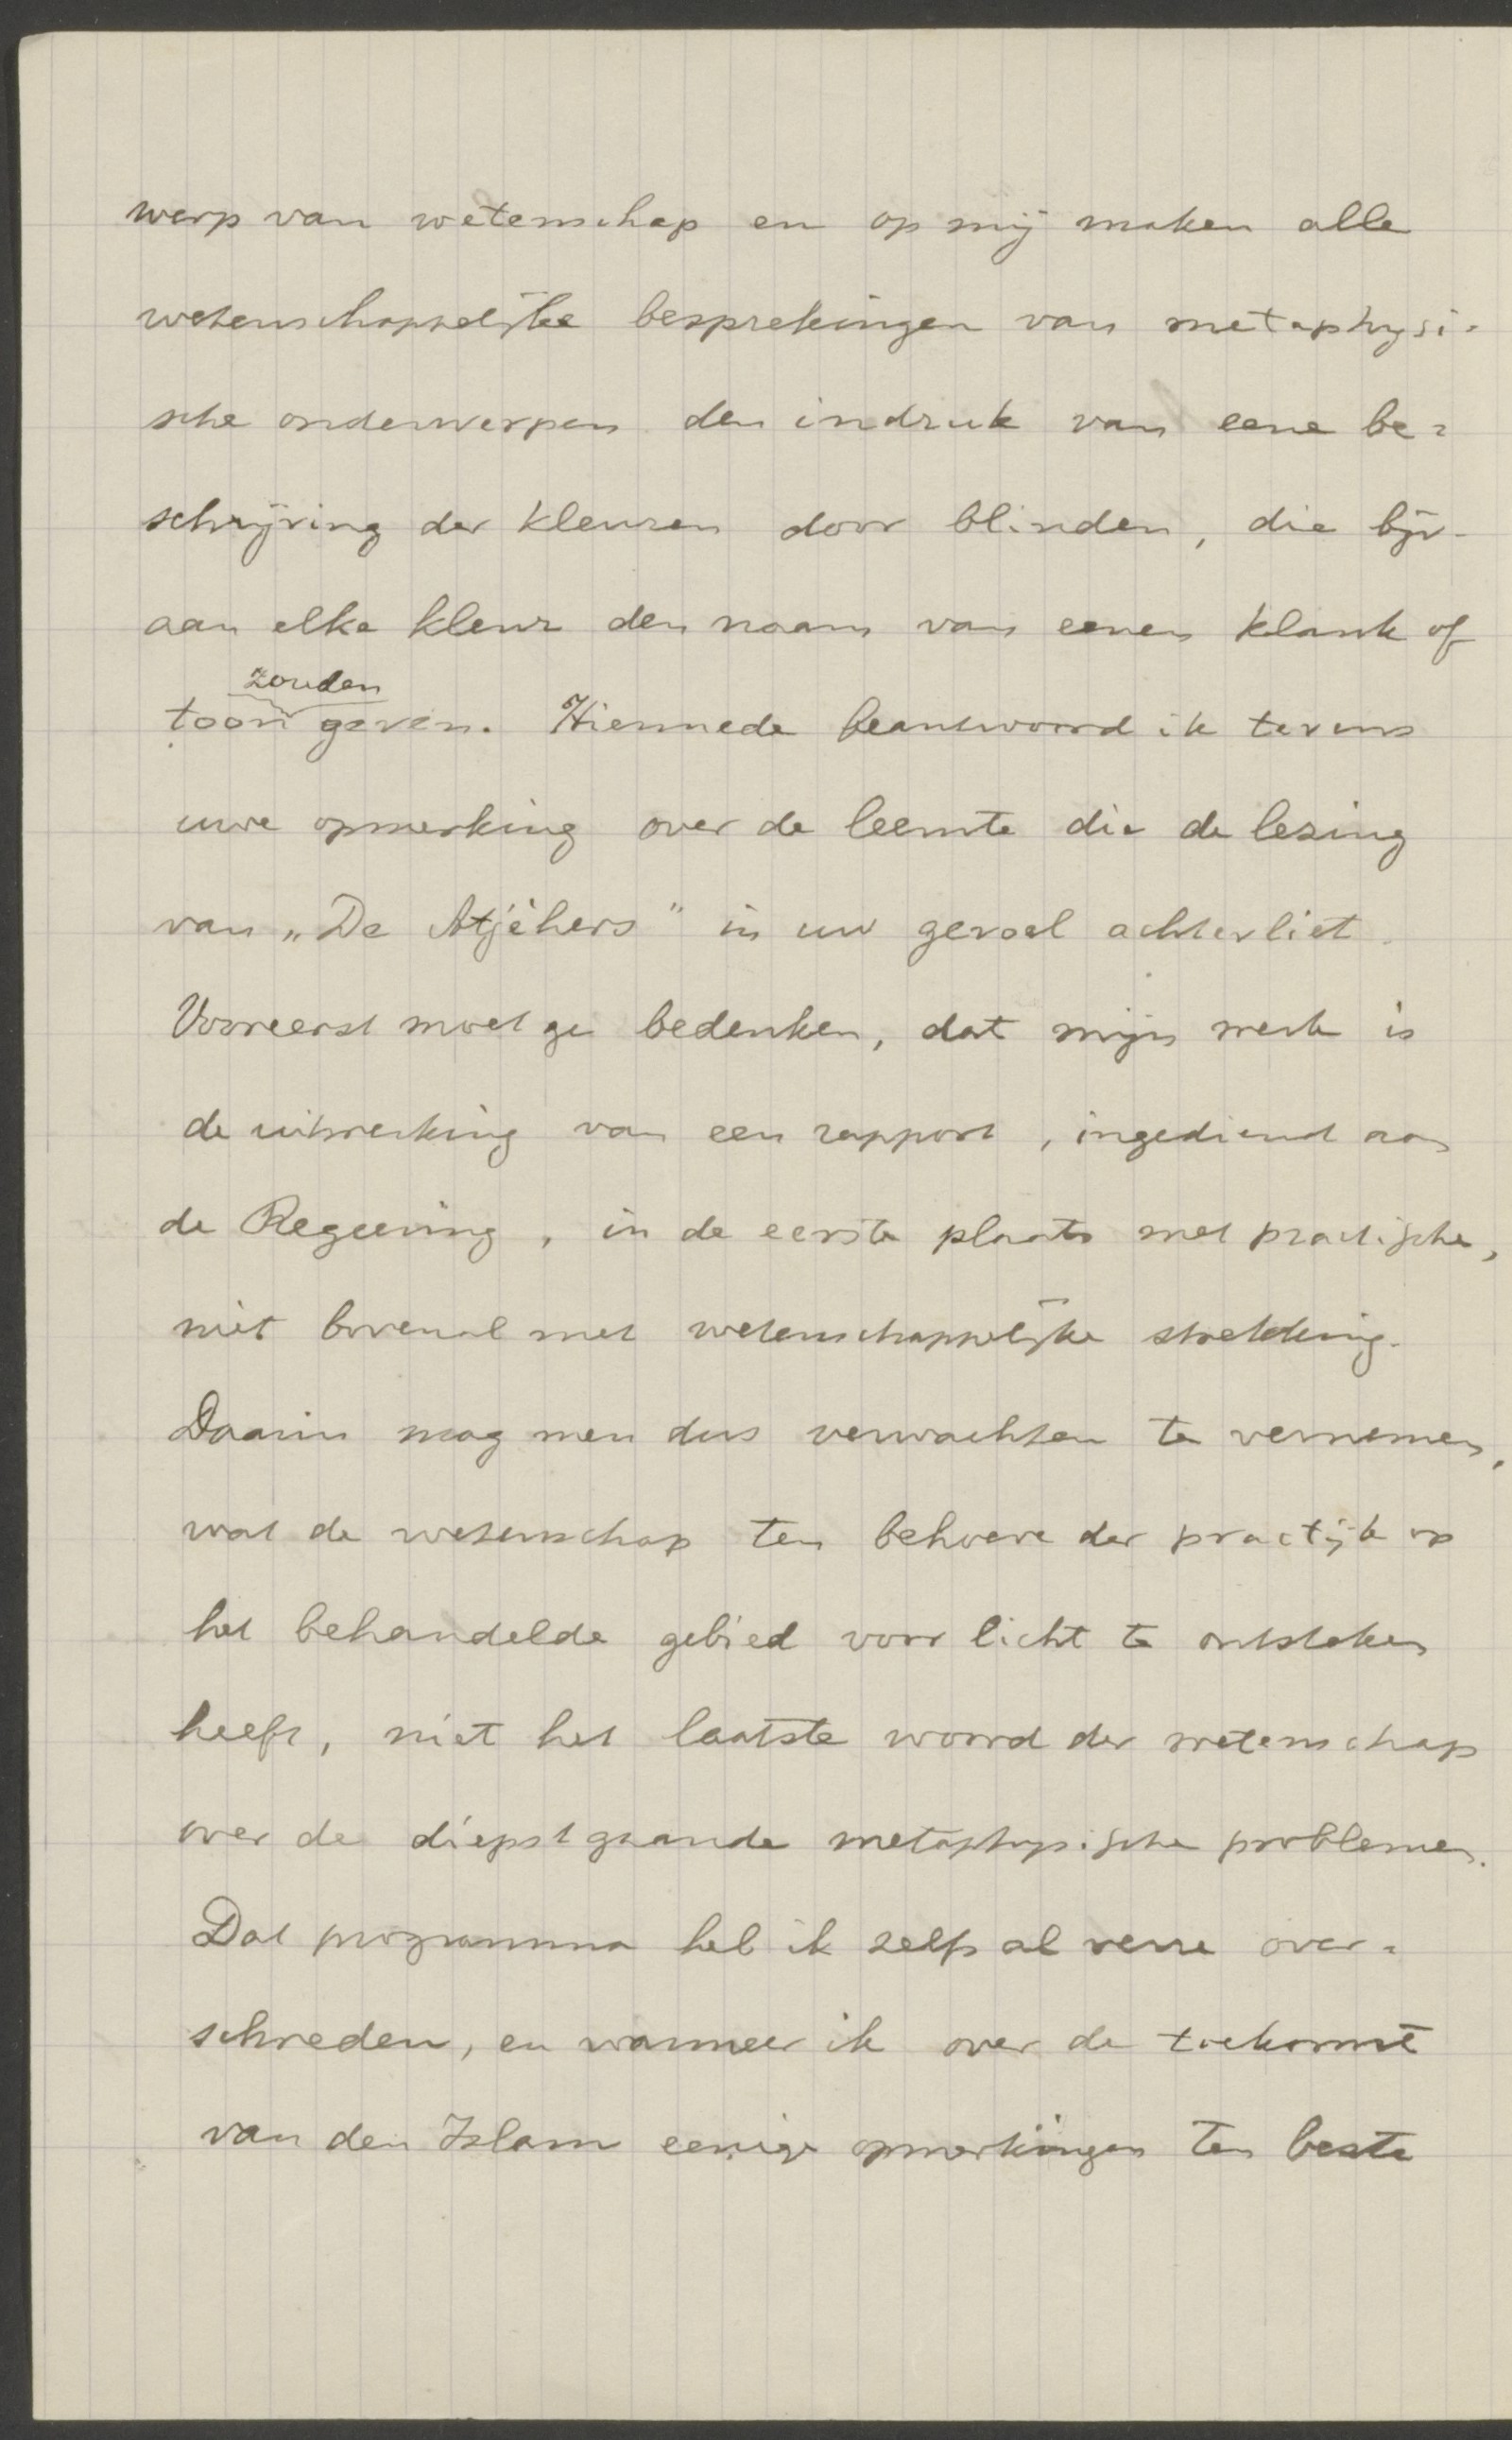 werp van wetenschap en op mij maken alle
wetenschappelijke besprekingen van metaphysi=
sche onderwerpen den indruk van eene be=
schrijving der kleuren door blinden, die bijv.
aan elke kleur den naam van eenen klank of
zouden
toon geven. Hiermede beantwoord ik tevens
uwe opmerking over de leemte die de lezing
van „De Atjèhers" in uw gevoel achterliet.
Vooreerst moet ge bedenken, dat mijn werk is
de uitwerking van een rapport, ingediend aan
de Regeering, in de eerste plaats met practische,
niet bovenal met wetenschappelijke strekking.
Daarin mag men dus verwachten te vernemen,
wat de wetenschap ten behoeve der practijk op
het behandelde gebied voor licht te ontsteken
heeft, niet het laatste woord der wetenschap
over de diepstgaande metaphysische problemen.
Dat programma heb ik zelfs al verre over=
schreden, en wanneer ik over de toekomst
van den Islam eenige opmerkingen ten beste